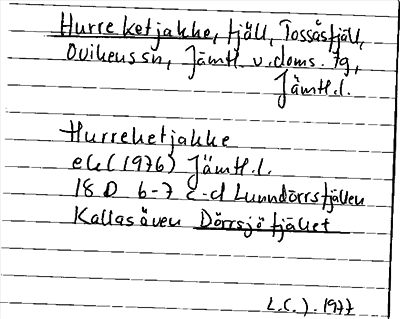 Hurreketjakke, fjäll, Tossåsfjäll,
Ovikens sn, Jämtl. v. doms. tg,
Jämtl.l.
Hurreketjakke
ek (1976) Jämtl.l.
18 D 6-7 c-d Lunndörrsfjällen
Kallas även Dörrsjöfjället
L.C.J. 1977